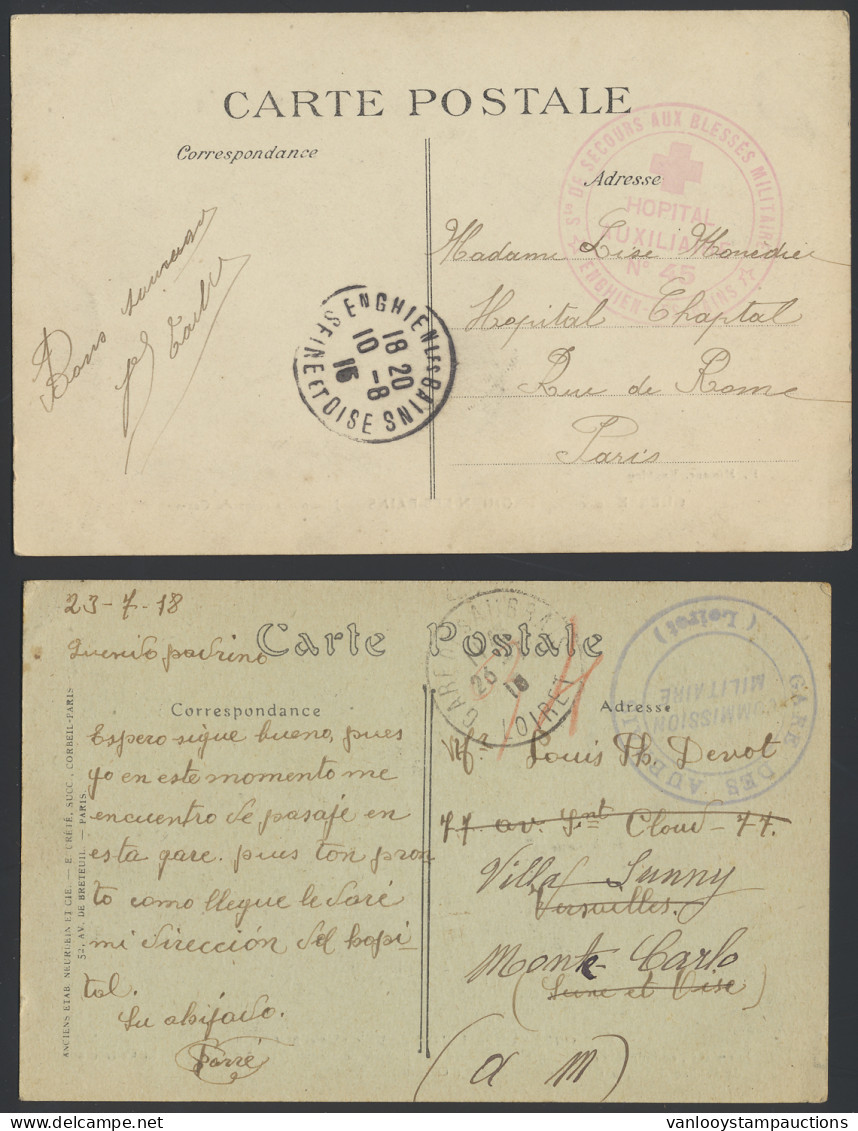 CARTE POSTALE
Correspondance
Adresse
Sté DE SECOURS AUX BLESSÉS MILITAIRES
HOPITAL
AUXILIAIRE
N° 45
ENGHIEN-LES-BAINS
Bons
ENGHIEN LES BAINS
18 20
10 -8
15
SEINE ET OISE
Madame Lise
Hopital Chaptal
Rue de Rome
Paris
23-7-18
Carte Postale
Querido padrino
Correspondance
Adresse
Espero sigue bueno, pues
yo en este momento me
encuentro de pasaje en
esta gare. pues ton pron
to como llegue le daré
mi dirección del hopi-
tal.
Su ahijado.
ANCIENS ETAB. NEURDEIN ET CIE. — E. CRÉTÉ, SUCC., CORBEIL-PARIS
52, AV. DE BRETEUIL. — PARIS.
26
18
LOIRET
GARE DES AUBRAIS
(Loiret)
COMMISSION
MILITAIRE
Mr. Louis Th. Devot
77 av. Snt Cloud - 77.
Villa Sunny
Versailles.
Monte-Carlo
(Seine et Oise)
(a m)
vanlooystampauctions